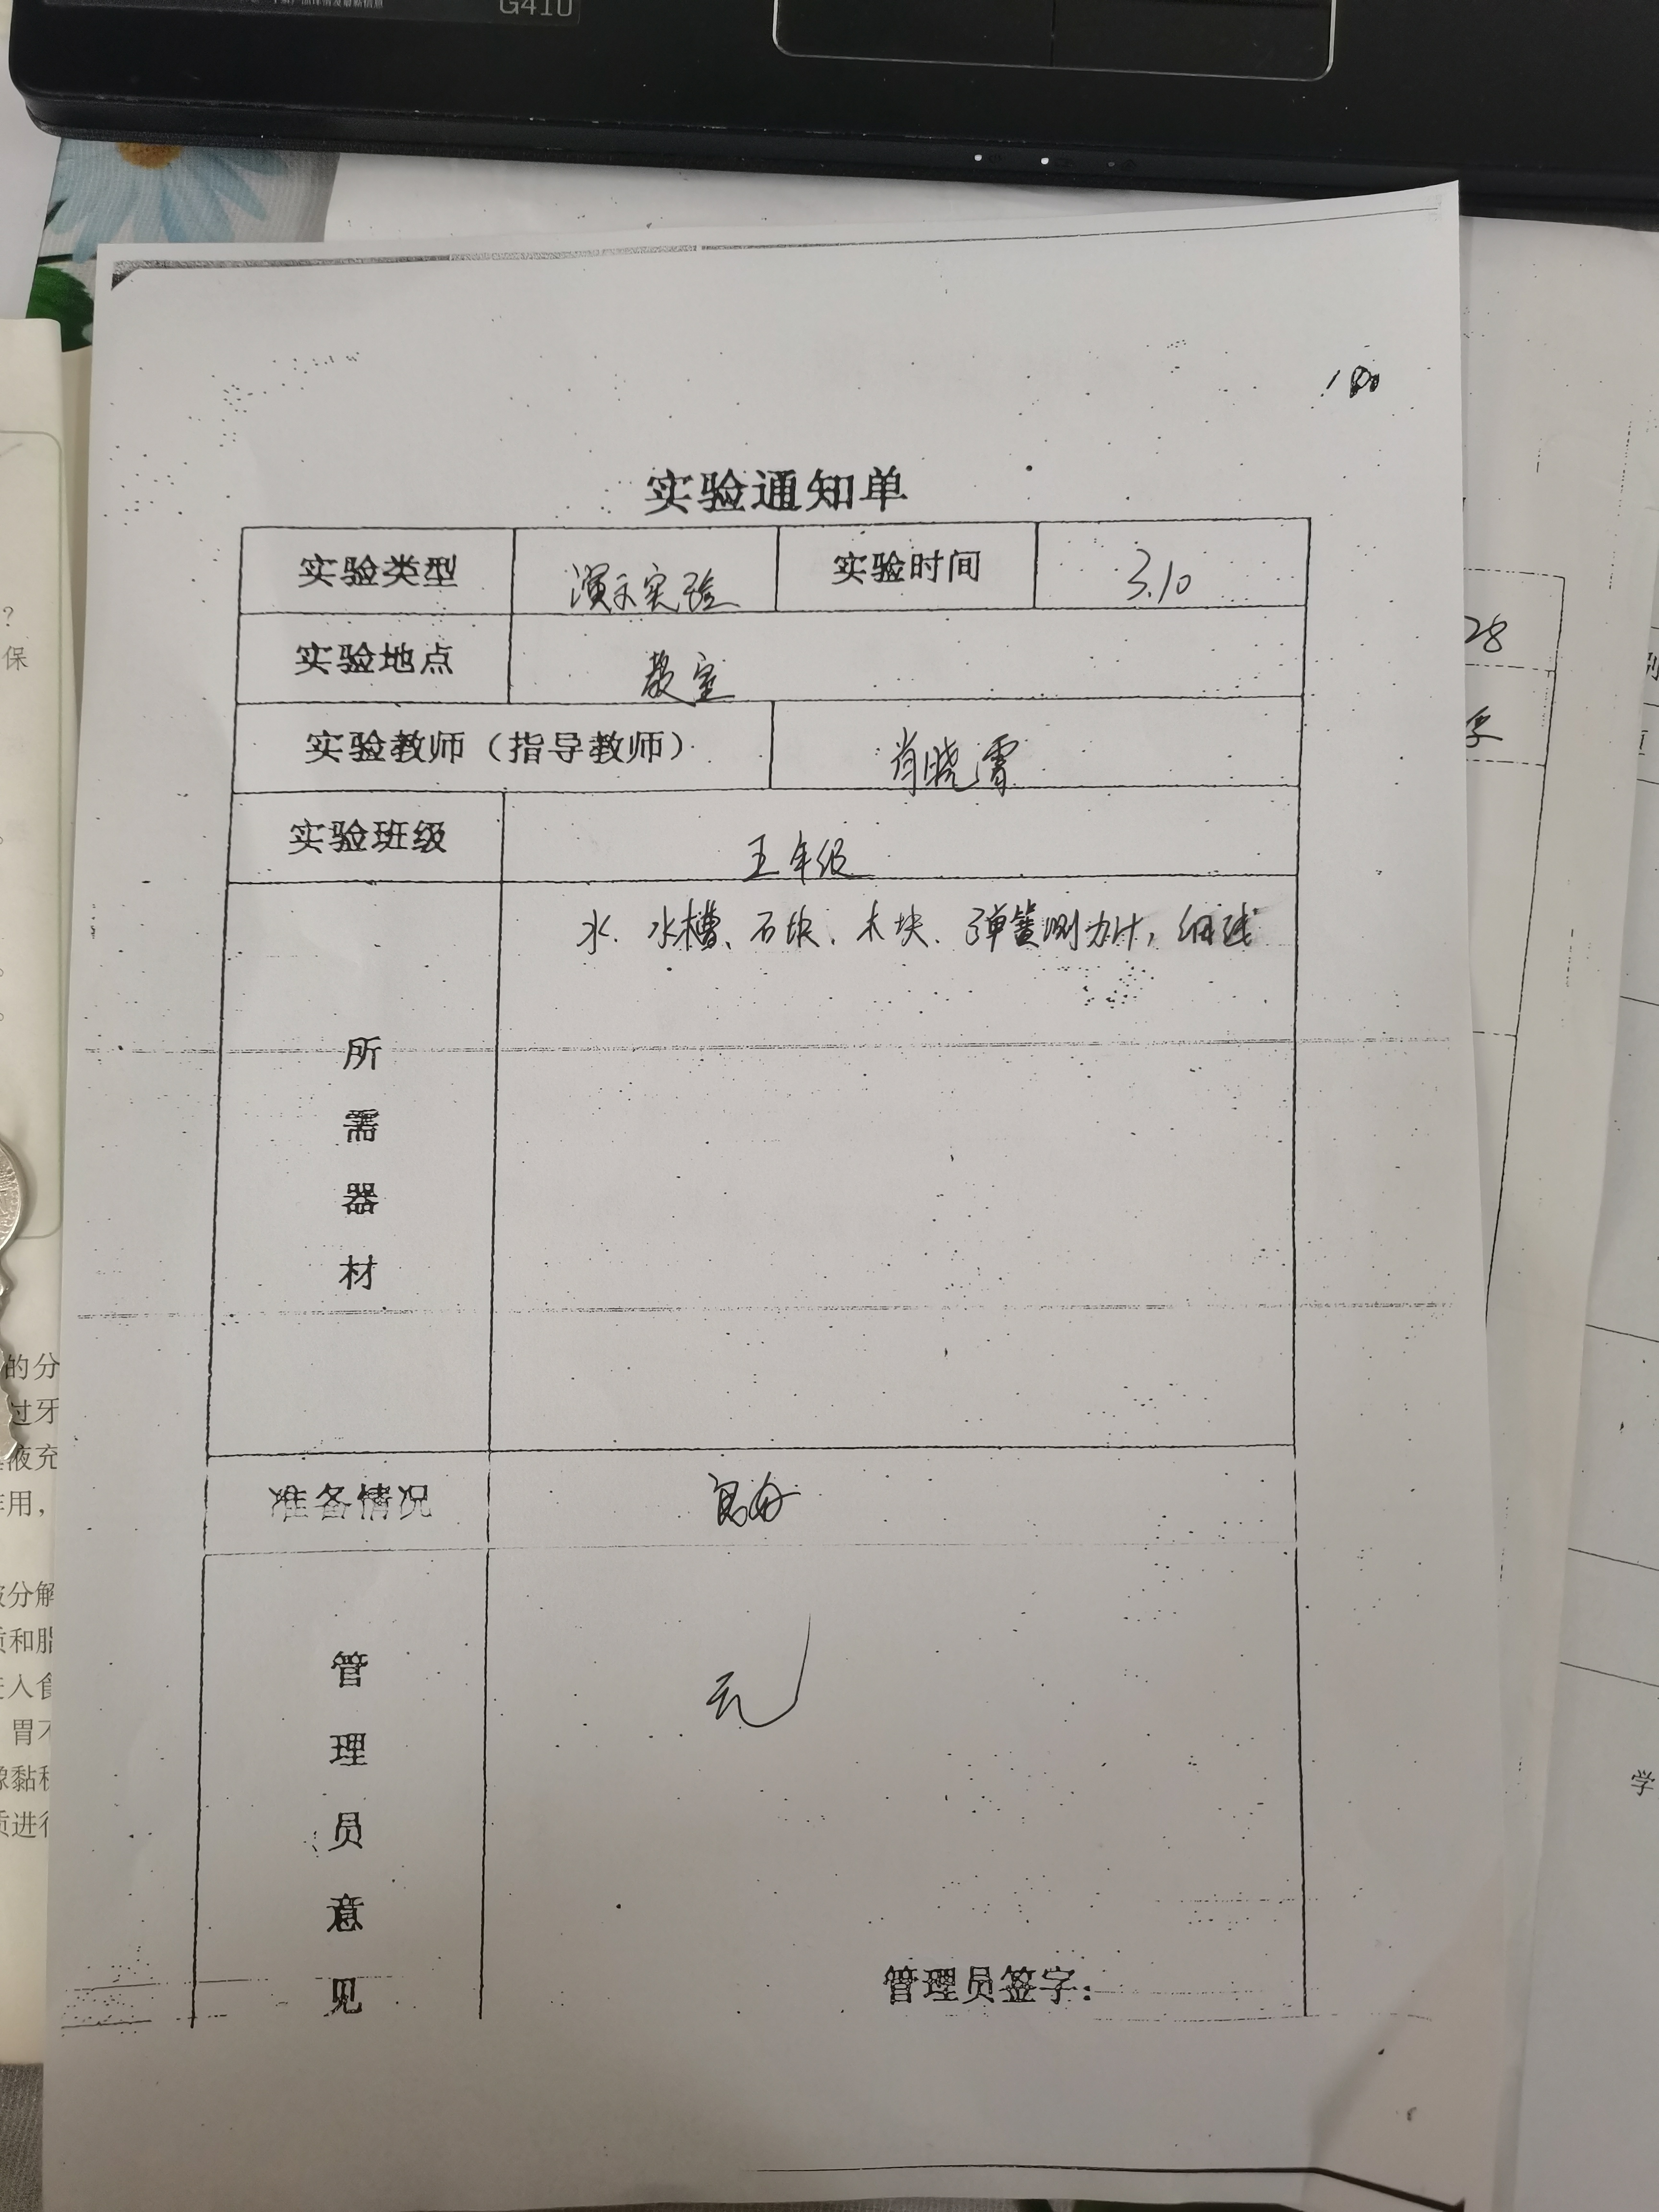 G410
实验通知单
实验类型 演示实验 实验时间 3.10
实验地点 教室
实验教师（指导教师） 肖晓霄
实验班级 五年级
所需器材 水、水槽、石块、木块、弹簧测力计，细线
准备情况 良好
管理员意见 无
管理员签字：
28
?
保
的分
过牙
液充
作用，
被分解
质和脂
进入食
胃不
像黏稠
质进行
学